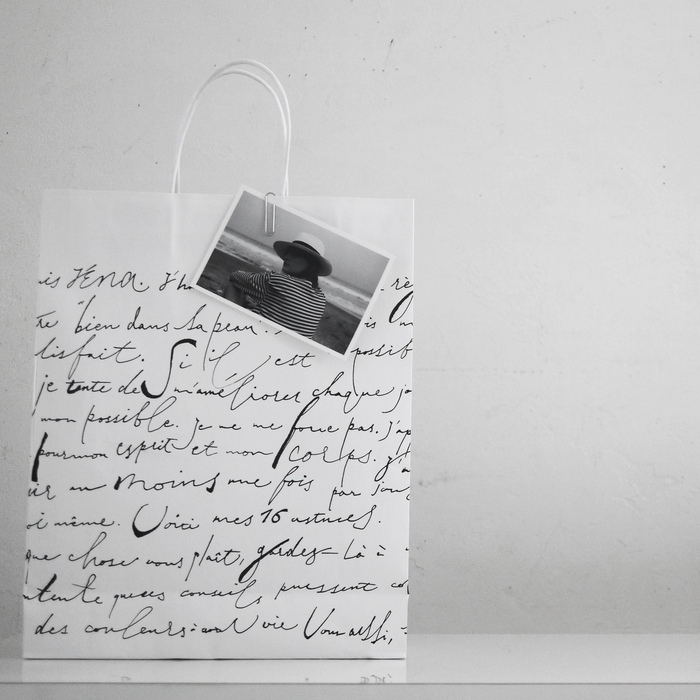 is Héna. J'h
bien dans sa peau.
lisfait. Si il est possib
je tente de m'améliorer chaque jo
mon possible. Je me me force pas. j'ap
pour mon esprit et mon corps. j'a
ir au moins une fois par jour
oi même. Voici mes 16 astuces.
que chose vous plaît, gardez-là à
tente que ces conseils puissent co
des couleurs: vie Vous aussi,